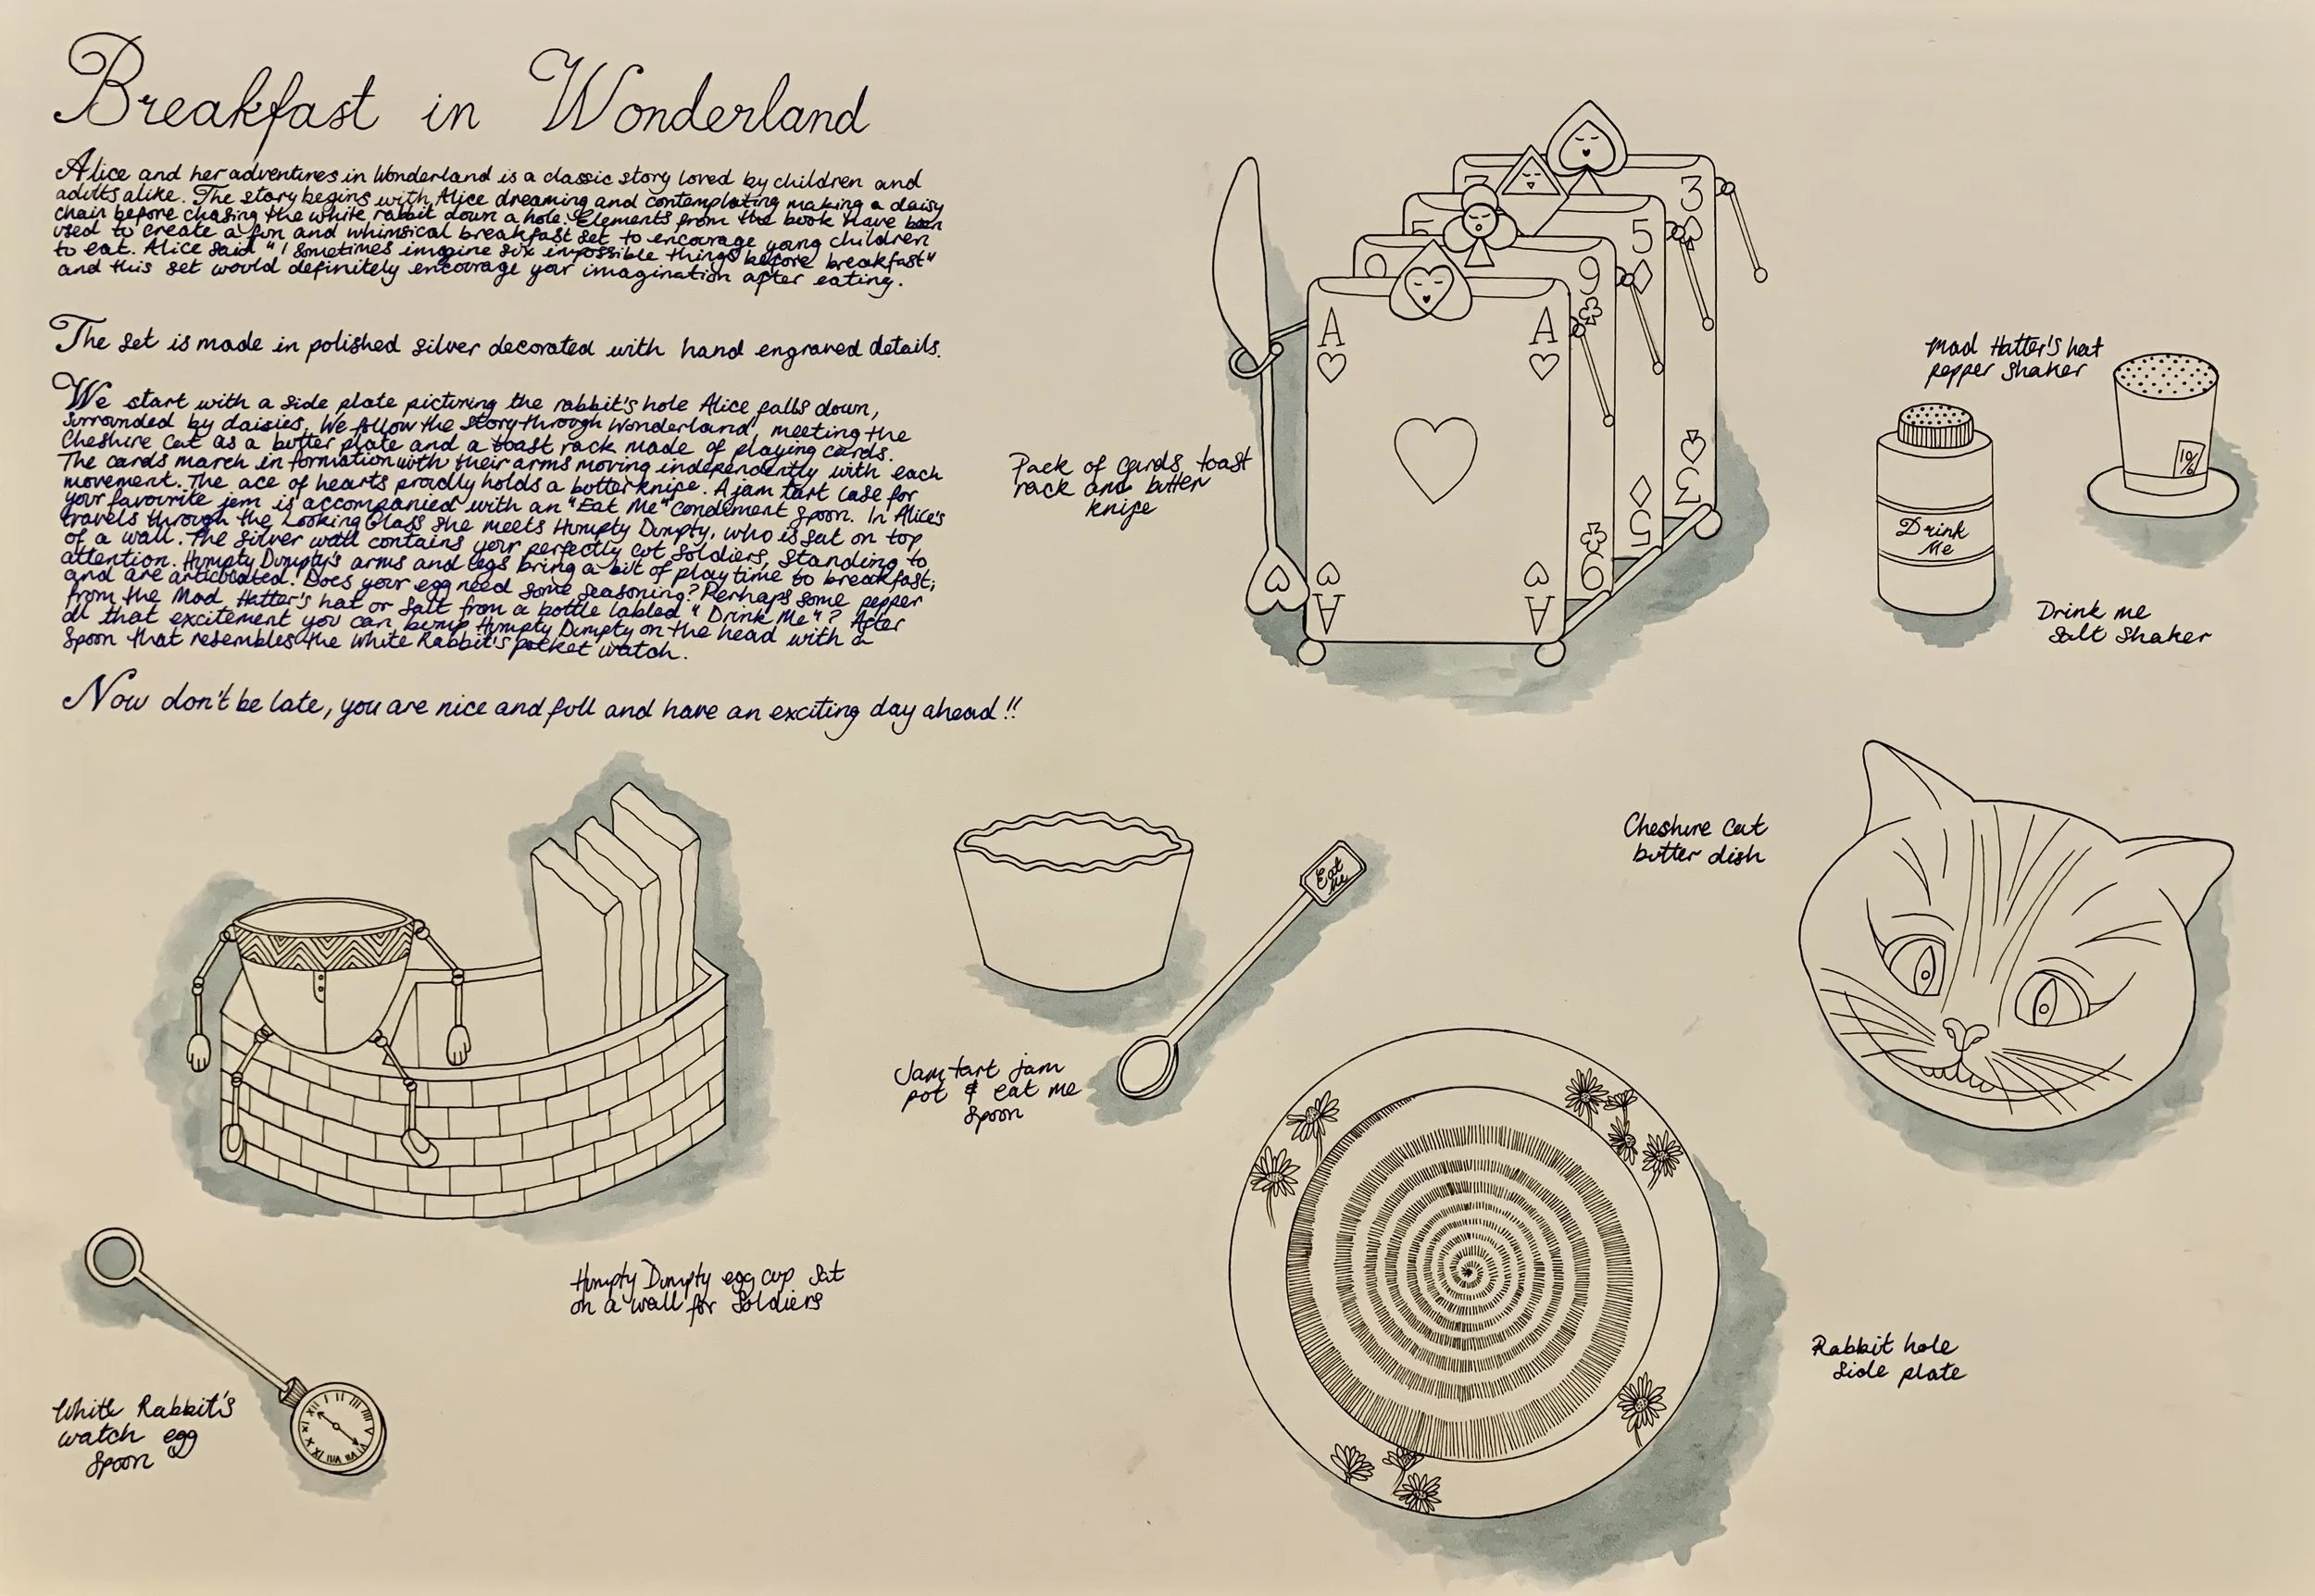 Breakfast in Wonderland
Alice and her adventures in Wonderland is a classic story loved by children and
adults alike. The story begins with Alice dreaming and contemplating making a daisy
chain before chasing the white rabbit down a hole. Elements from the book have been
used to create a fun and whimsical breakfast set to encourage young children
to eat. Alice said "I sometimes imagine six impossible things before breakfast"
and this set would definitely encourage your imagination after eating.
The set is made in polished silver decorated with hand engraved details.
We start with a side plate picturing the rabbit's hole Alice falls down,
surrounded by daisies. We follow the story through Wonderland, meeting the
Cheshire Cat as a butter plate and a toast rack made of playing cards.
The cards march in formation with their arms moving independently with each
movement. The ace of hearts proudly holds a butter knife. A jam tart case for
your favourite jam is accompanied with an "Eat Me" condement spoon. In Alice's
travels through the Looking Glass she meets Humpty Dumpty, who is sat on top
of a wall. The silver wall contains your perfectly cut soldiers, standing to
attention. Humpty Dumpty's arms and legs bring a bit of playtime to breakfast;
and are articulated. Does your egg need some seasoning? Perhaps some pepper
from the Mad Hatter's hat or salt from a bottle labled "Drink Me"? After
all that excitement you can bump Humpty Dumpty on the head with a
spoon that resembles the White Rabbit's pocket watch.
Now don't be late, you are nice and full and have an exciting day ahead!!
3
5
9
A A
A A
9
5
3
Pack of cards toast
rack and butter
knife
Mad Hatter's hat
pepper shaker
10/6
Drink
Me
Drink me
Salt shaker
Cheshire Cat
butter dish
Eat
Me
Jam tart jam
pot & eat me
spoon
Humpty Dumpty egg cup sat
on a wall for soldiers
White Rabbit's
watch egg
spoon
Rabbit hole
side plate